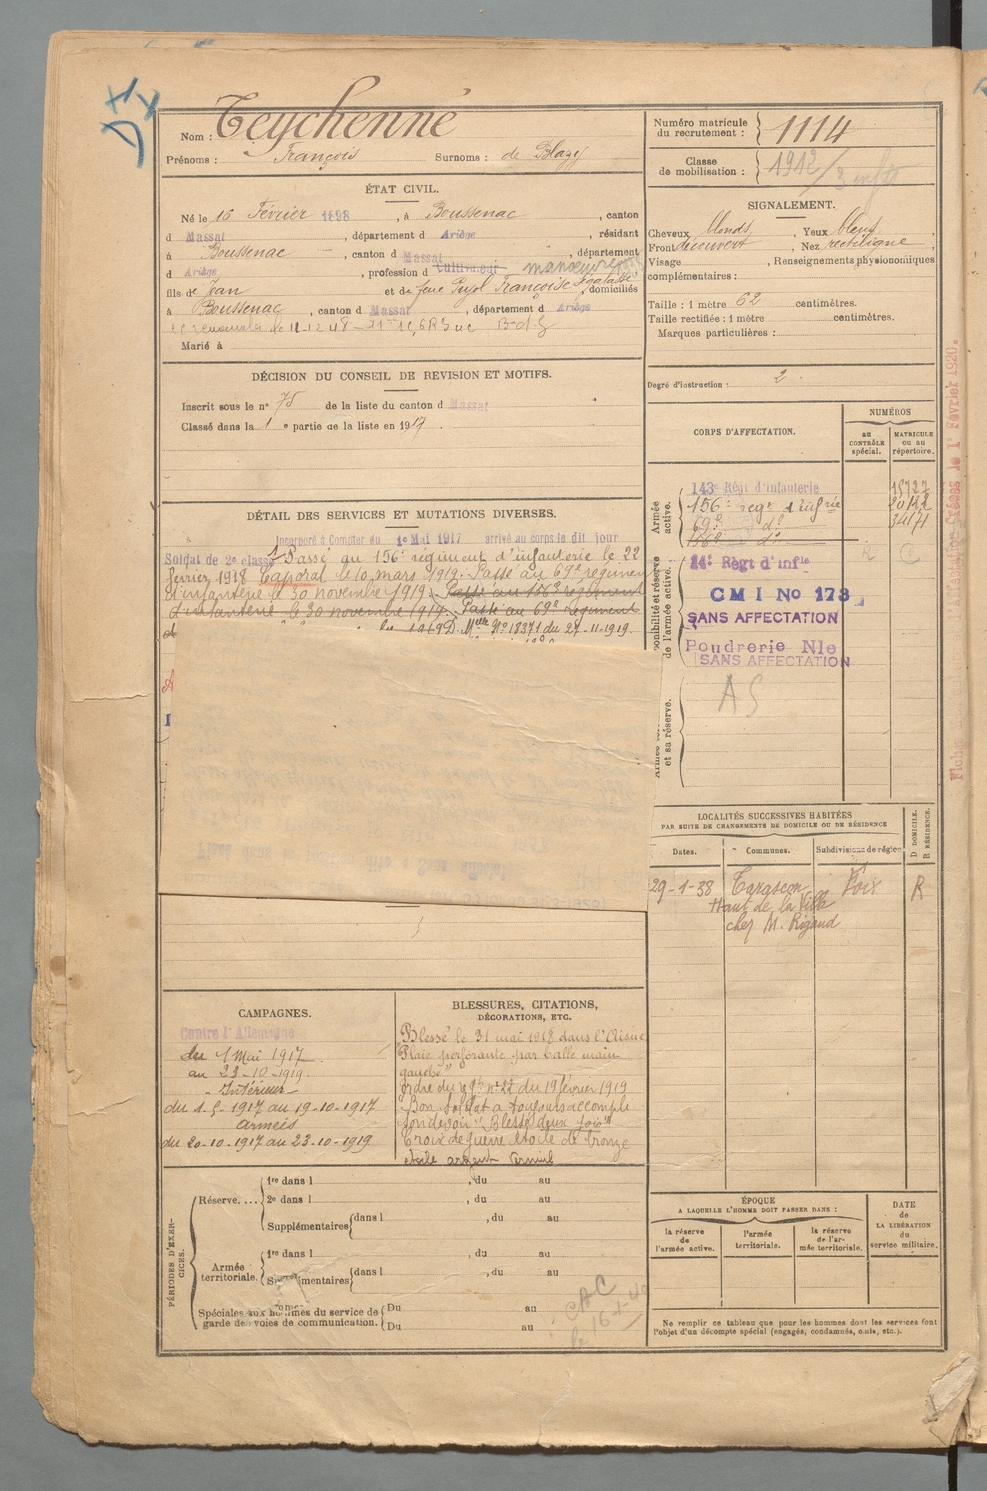 Nom : Teychenné
Prénoms : François Surnoms : de Blazy
ÉTAT CIVIL.
Né le 16 Février 1898, à Boussenac, canton
d Massat, département d Ariège, résidant
à Boussenac, canton d Massat, département
d Ariège, profession d Cultivateur manœuvre
fils de Jean et de feue Pujol Françoise, domiciliés
à Boussenac, canton d Massat, département d Ariège
Marié à
DÉCISION DU CONSEIL DE REVISION ET MOTIFS.
Inscrit sous le n° 75 de la liste du canton d Massat
Classé dans la 1 e partie de la liste en 1917.
DÉTAIL DES SERVICES ET MUTATIONS DIVERSES.
Incorporé à Compter du 1er Mai 1917 arrivé au corps le dit jour
Soldat de 2e classe Passé au 156e régiment d'infanterie le 22
février 1918 Caporal le 10 mars 1919. Passé au 69e régiment
d'infanterie le 30 novembre 1919. Passé au 156e régiment
d'infanterie le 30 novembre 1919. Passé au 69e régiment
1919 D. Mlle N° 18371 du 27-11-1919.
CAMPAGNES.
Contre l'Allemagne
du 1 Mai 1917
au 23-10-1919.
Intérieur
du 1.5.1917 au 19-10-1917
Armées
du 20-10-1917 au 23-10-1919
BLESSURES, CITATIONS,
DÉCORATIONS, ETC.
Blessé le 31 mai 1918 dans l'Aisne
"Plaie perforante par balle main
gauche"
Ordre du Rgt n° 22 du 19 février 1919
Bon soldat a toujours accompli
son devoir "Blessé deux fois"
Croix de guerre étoile de bronze
étoile argent vermeil
PÉRIODES D'EXERCICES.
Réserve....
1re dans l , du au
2e dans l , du au
Supplémentaires dans l , du au
Armée territoriale.
1re dans l , du au
Supplémentaires dans l , du au
Spéciales aux hommes du service de
garde des voies de communication.
Du au
Du au
CAC
le 16-1-40
Numéro matricule
du recrutement : 1114
Classe
de mobilisation : 1912/
SIGNALEMENT.
Cheveux blonds, Yeux bleus,
Front découvert, Nez rectiligne,
Visage , Renseignements physionomiques
complémentaires :
Taille : 1 mètre 62 centimètres.
Taille rectifiée : 1 mètre centimètres.
Marques particulières :
Degré d'instruction : 2.
CORPS D'AFFECTATION.
NUMÉROS
au
CONTRÔLE
spécial.
MATRICULE
ou au
répertoire.
Armée
active.
143e Régt d'Infanterie 15727
156e Régt d'infrie 20122
69e do 34171
156e do
de l'armée active.
Régt d'Infie
CMI No 173
SANS AFFECTATION
Poudrerie Nle
SANS AFFECTATION
et sa réserve.
AS
LOCALITÉS SUCCESSIVES HABITÉES
PAR SUITE DE CHANGEMENTS DE DOMICILE OU DE RÉSIDENCE
Dates. Communes. Subdivisions de région
D DOMICILE.
R RÉSIDENCE.
29-1-38 Tarascon Foix R
Haut de la Ville
chez M. Rigaud
ÉPOQUE
A LAQUELLE L'HOMME DOIT PASSER DANS :
la réserve
de
l'armée active.
l'armée
territoriale.
la réserve
de l'ar-
mée territoriale.
DATE
de
LA LIBÉRATION
du
service militaire.
Ne remplir ce tableau que pour les hommes dont les services font
l'objet d'un décompte spécial (engagés, condamnés, omis, etc.).